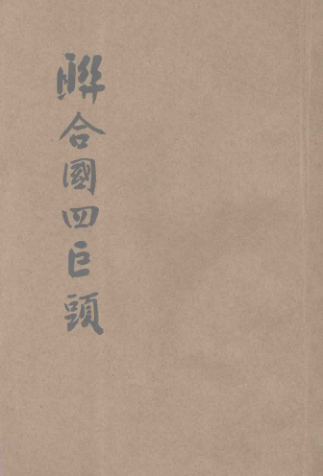 聯合國四巨頭